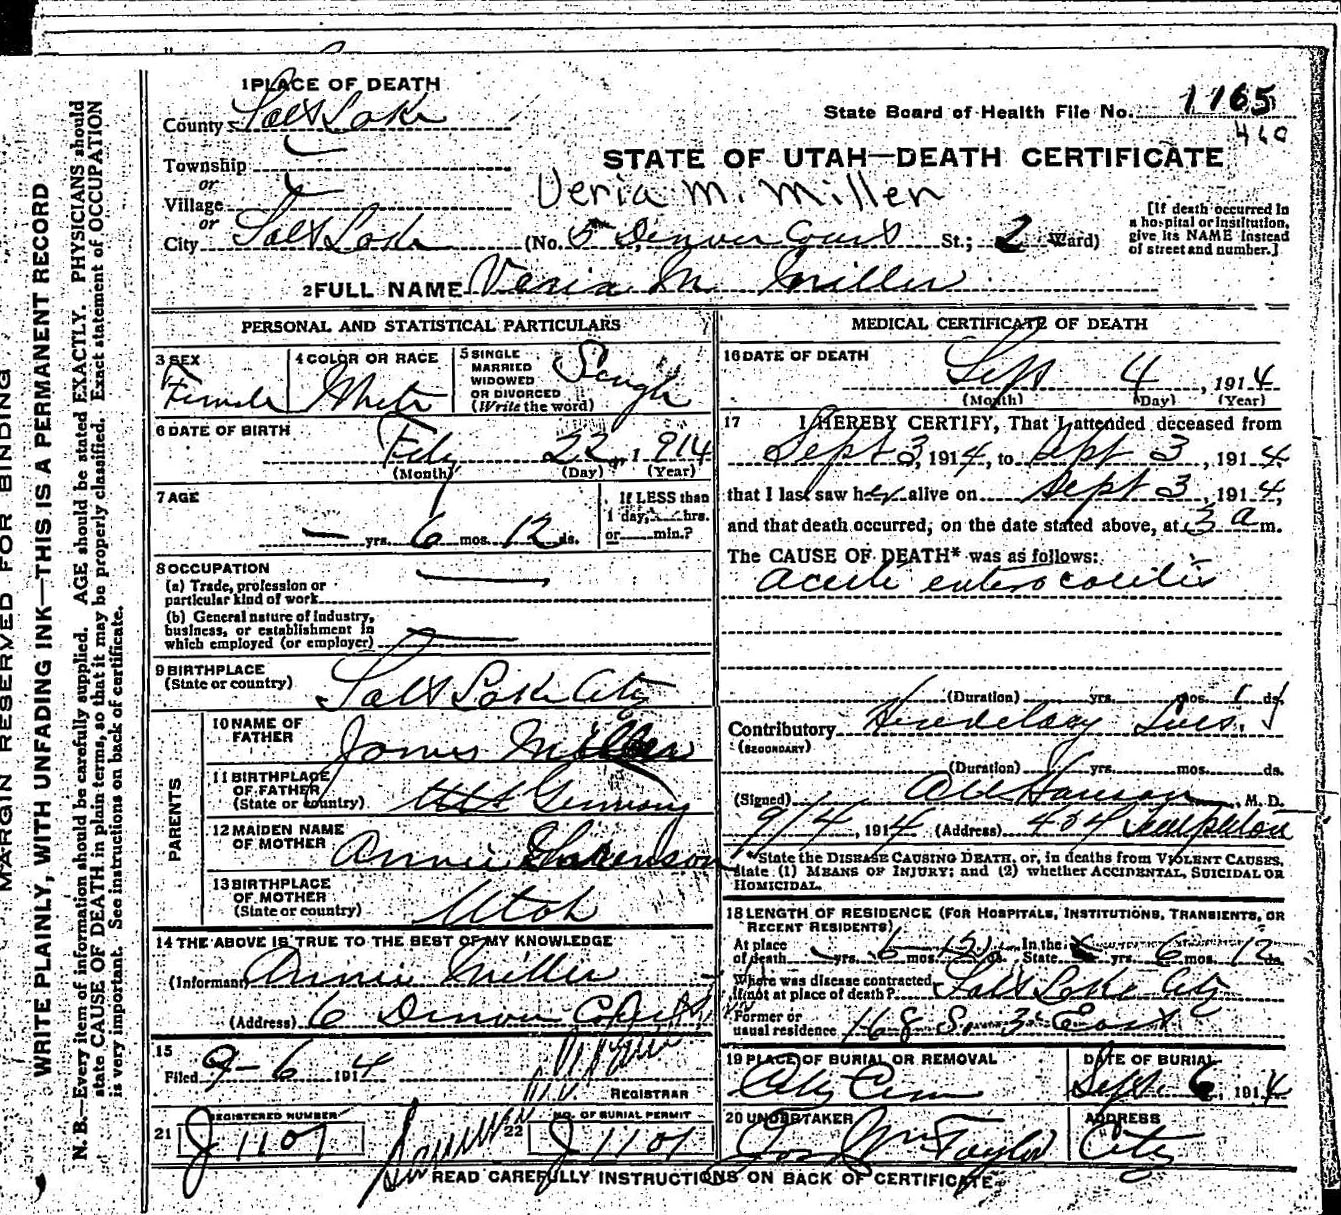 1 PLACE OF DEATH
County Salt Lake
State Board of Health File No. 1165
460
Township
or
Village
or
City Salt Lake
STATE OF UTAH—DEATH CERTIFICATE
Veria M. Miller
(No. 5 Denver Court St.; 2 Ward)
[If death occurred in
a hospital or institution,
give its NAME instead
of street and number.]
2 FULL NAME Veria M. Miller
PERSONAL AND STATISTICAL PARTICULARS
3 SEX
Female
4 COLOR OR RACE
White
5 SINGLE
MARRIED
WIDOWED
OR DIVORCED
(Write the word)
Single
6 DATE OF BIRTH
Feb 22, 1914
(Month) (Day) (Year)
7 AGE
— yrs. 6 mos. 12 ds.
If LESS than
1 day, hrs.
or min.?
8 OCCUPATION
(a) Trade, profession or
particular kind of work
(b) General nature of industry,
business, or establishment in
which employed (or employer)
9 BIRTHPLACE
(State or country)
Salt Lake City
PARENTS
10 NAME OF
FATHER
James Miller
11 BIRTHPLACE
OF FATHER
(State or country)
Germany
12 MAIDEN NAME
OF MOTHER
Annie
13 BIRTHPLACE
OF MOTHER
(State or country)
Utah
14 THE ABOVE IS TRUE TO THE BEST OF MY KNOWLEDGE
(Informant) Annie Miller
(Address) 6 Denver Court
15
Filed 9-6 1914
REGISTRAR
21
REGISTERED NUMBER
J 1101
22
NO. OF BURIAL PERMIT
J 1101
MEDICAL CERTIFICATE OF DEATH
16 DATE OF DEATH
Sept 4, 1914
(Month) (Day) (Year)
17 I HEREBY CERTIFY, That I attended deceased from
Sept 3, 1914, to Sept 3, 1914
that I last saw her alive on Sept 3, 1914,
and that death occurred, on the date stated above, at 3 a m.
The CAUSE OF DEATH* was as follows:
Acute enterocolitis
(Duration) yrs. mos. 1 ds.
Contributory
(SECONDARY)
(Duration) yrs. mos. ds.
(Signed) M. D.
9/4, 1914 (Address) 404 Templeton
*State the DISEASE CAUSING DEATH, or, in deaths from VIOLENT CAUSES,
state (1) MEANS OF INJURY; and (2) whether ACCIDENTAL, SUICIDAL OR
HOMICIDAL.
18 LENGTH OF RESIDENCE (FOR HOSPITALS, INSTITUTIONS, TRANSIENTS, OR
RECENT RESIDENTS)
At place
of death yrs. 6 mos. 12 ds. In the
State yrs. 6 mos. 12 ds.
Where was disease contracted
if not at place of death? Salt Lake City
Former or
usual residence 168 S. 3 East
19 PLACE OF BURIAL OR REMOVAL
City Cem
DATE OF BURIAL
Sept. 6, 1914
20 UNDERTAKER
Jos. Wm Taylor
ADDRESS
City
READ CAREFULLY INSTRUCTIONS ON BACK OF CERTIFICATE
MARGIN RESERVED FOR BINDING
WRITE PLAINLY, WITH UNFADING INK—THIS IS A PERMANENT RECORD
N. B.—Every item of information should be carefully supplied. AGE should be stated EXACTLY. PHYSICIANS should
state CAUSE OF DEATH in plain terms, so that it may be properly classified. Exact statement of OCCUPATION
is very important. See instructions on back of certificate.